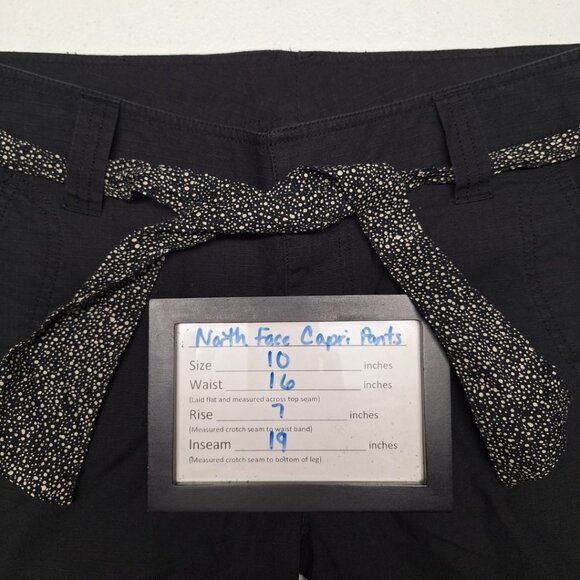 North Face Capri Pants
Size 10 inches
Waist 16 inches
(Laid flat and measured across top seam)
Rise 7 inches
(Measured crotch seam to waist band)
Inseam 19 inches
(Measured crotch seam to bottom of leg)